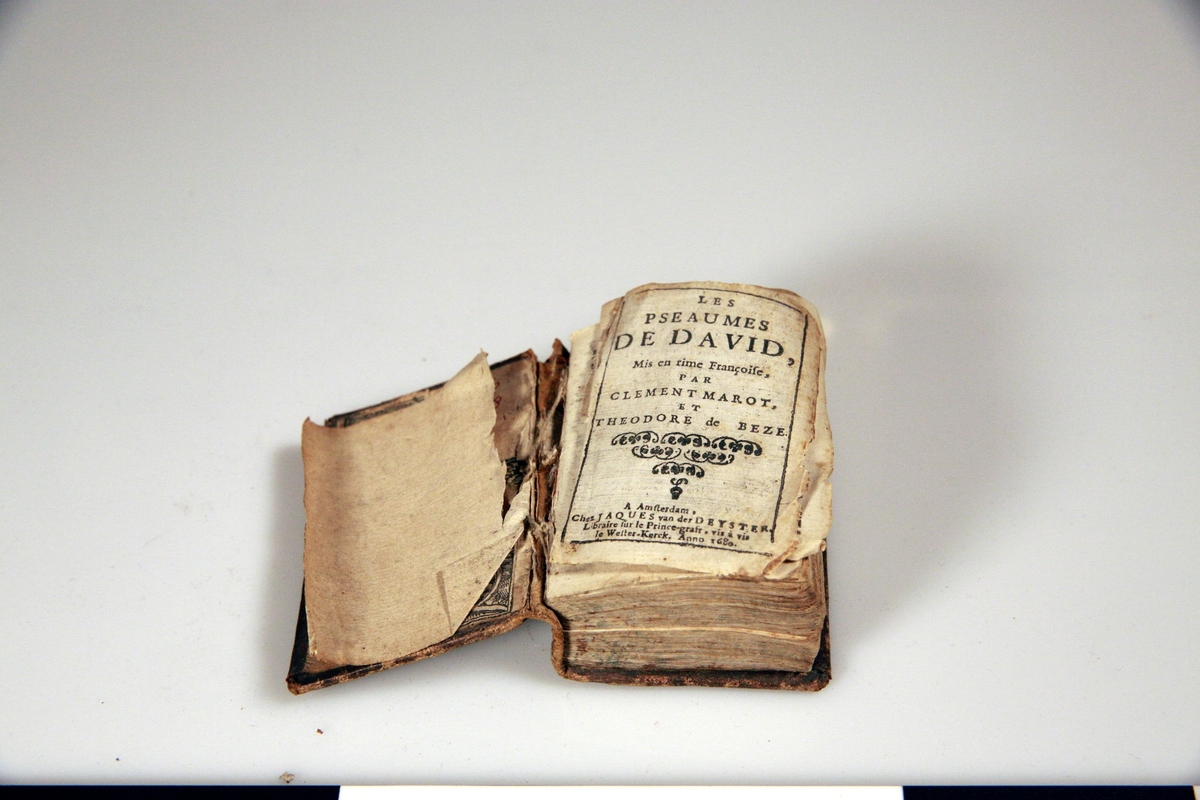 LES
PSEAUMES
DE DAVID,
Mis en rime Françoise,
PAR
CLEMENT MAROT,
ET
THEODORE de BEZE.
A Amsterdam,
Chez JAQUES van der DEYSTER,
Libraire sur le Prince-graft, vis à vis
le Wester-Kerck. Anno 1680.